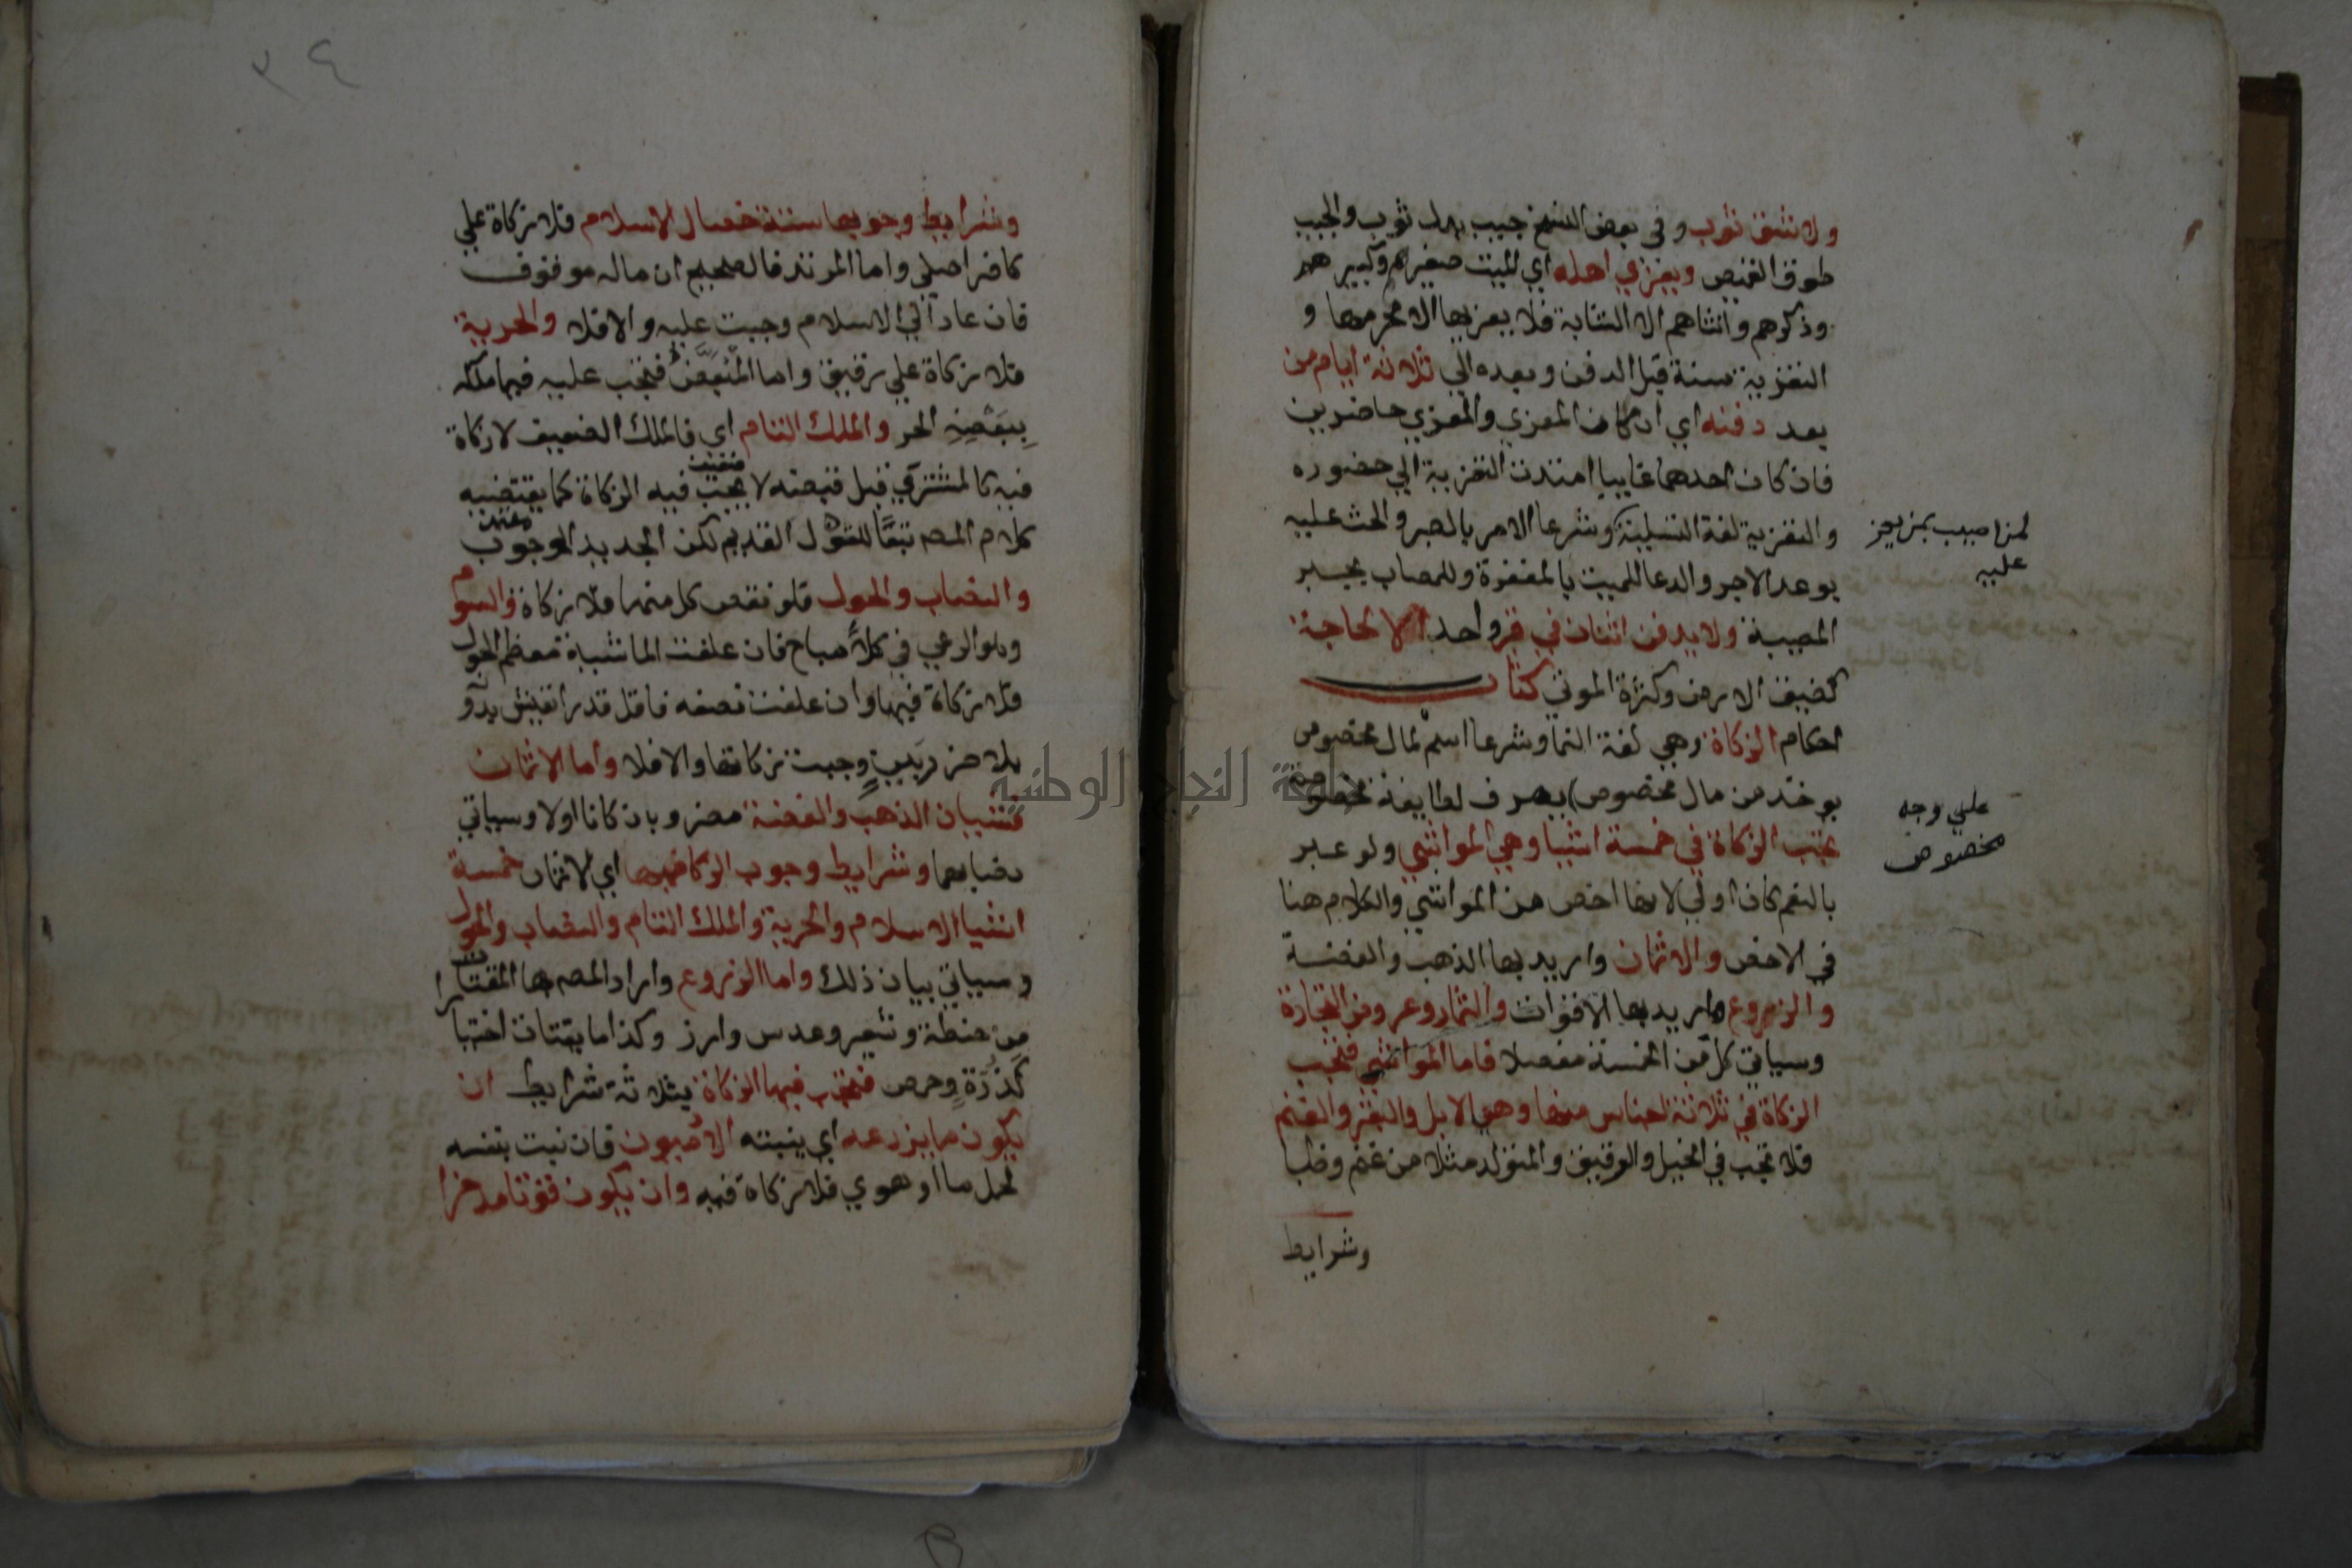 ولا شق ثوب وفي بعض النسخ جيب بدل ثوب والجيب
طوق القميص ويعزي اهله اي الميت صغيرهم وكبيرهم
وذكرهم وانثاهم الا الشابة فلا يعزيها الا محرمها و
التعزية سنة قبل الدفن وبعده الي ثلاثة ايام من
بعد دفنه اي ان كان المعزي والمعزي حاضرين
فان كان احدهما غايبا امتدت التعزية الي حضوره
والتعزية لغة التسلية وشرعا الامر بالصبر والحث عليه
بوعد الاجر والدعا للميت بالمغفرة وللمصاب بجبر
المصيبة ولا يدفن اثنان في قبر واحد الا لحاجة
كضيق الارض وكثرة الموتي كتاب
احكام الزكاة وهي لغة النما وشرعا اسم لمال مخصوص
يوخذ من مال مخصوص يصرف لطايفة مخصوصة
تجب الزكاة في خمسة اشيا وهي المواشي ولو عبر
بالنعم كان اولي لانها اخص من المواشي والكلام هنا
في الاخص والاثمان واريد بها الذهب والفضة
والزروع واريد بها الاقوات والثمار وعروض التجارة
وسياتي كل من الخمسة مفصلا فاما المواشي فتجب
الزكاة في ثلاثة اجناس منها وهي الابل والبقر والغنم
فلا تجب في الخيل والرقيق والمتولد مثلا من غنم وظبا
وشرايط
لمن اصيب بمن يعز
عليه
علي وجه
مخصوص
٣٤
وشرايط وجوبها ستة خصال الاسلام فلا زكاة علي
كافر اصلي واما المرتد فالصحيح ان ماله موقوف
فان عاد الي الاسلام وجبت عليه والا فلا والحرية
فلا زكاة علي رقيق واما المبعض فتجب عليه فيما ملكه
ببعضه الحر والملك التام اي فالملك الضعيف لا زكاة
فيه كالمشتري قبل قبضه لا تجب فيه الزكاة كما يقتضيه
كلام المصـ تبعا للقول القديم لكن الجديد الوجوب
والنصاب والحول فلو نقص كل منهما فلا زكاة والسوم
وهو الرعي في كلأ مباح فان علفت الماشية معظم الحول
فلا زكاة فيها وان علفت نصفه فاقل قدرا تعيش بدو
بلا ضرر بين وجبت زكاتها والا فلا واما الاثمان
فشيان الذهب والفضة مضروبان كانا اولا وسياتي
نصابهما وشرايط وجوب الزكاة فيها اي الاثمان خمسة
اشيا الاسلام والحرية والملك التام والنصاب والحول
وسياتي بيان ذلك واما الزروع واراد المصـ بها المقتات
من حنطة وشعير وعدس وارز وكذا ما يقتات اختيارا
كذرة وحمص فتجب فيها الزكاة بثلاثة شرايط ان
يكون مما يزرعه اي ينبته الادميون فان نبت بنفسه
لحمل ما او هوي فلا زكاة فيه وان يكون قوتا مدخرا
جامعة النجاح الوطنية